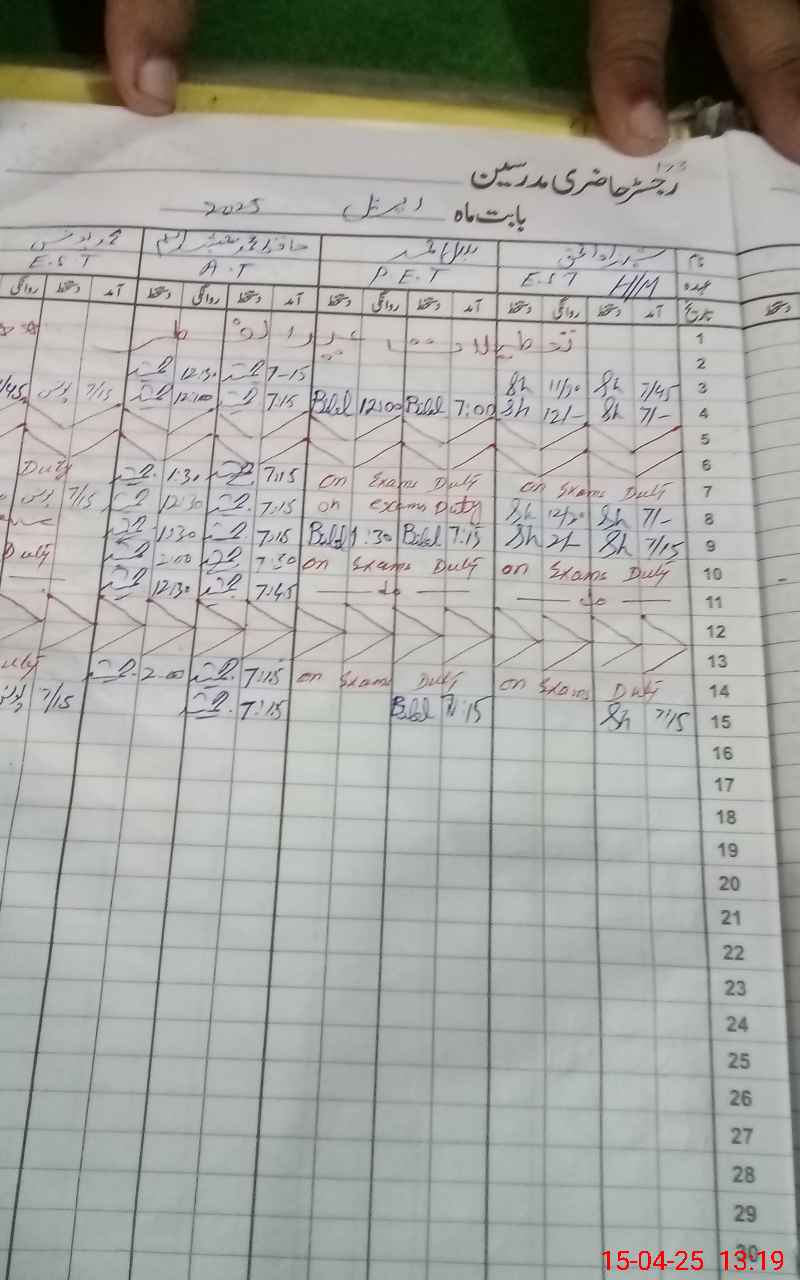 رجسٹر حاضری مدرسین
بابت ماہ اپریل 2025
نام
عہدہ E.S.T H/M P.E.T A.T E.S.T
تاریخ آمد دستخط روانگی دستخط آمد دستخط روانگی دستخط آمد دستخط روانگی دستخط آمد دستخط روانگی دستخط
1 تعطیلات عیدالفطر
2
3 7/45 Sh 11/30 Sh 7-15 12:30
4 7/- Sh 12/- Sh 7:00 Bilal 12:00 Bilal 7:15 12:00 7/15
5
6
7 on Exams Duty on Exams Duty 7:15 1:30 Duty
8 7/- Sh 12/20 Sh on exams Duty 7:15 12:30 7/15
9 7/15 Sh 2/- Sh 7:15 Bilal 1:30 Bilal 7:15 1:30
10 on Exams Duty on Exams Duty 7:30 2:00 Duty
11 — do — — do — 7:45 12:30
12
13
14 on Exams Duty on Exams Duty 7:15 2-00 Duty
15 7/15 Sh 7:15 Bilal 7:15 7/15
16
17
18
19
20
21
22
23
24
25
26
27
28
29
30
15-04-25 13:19